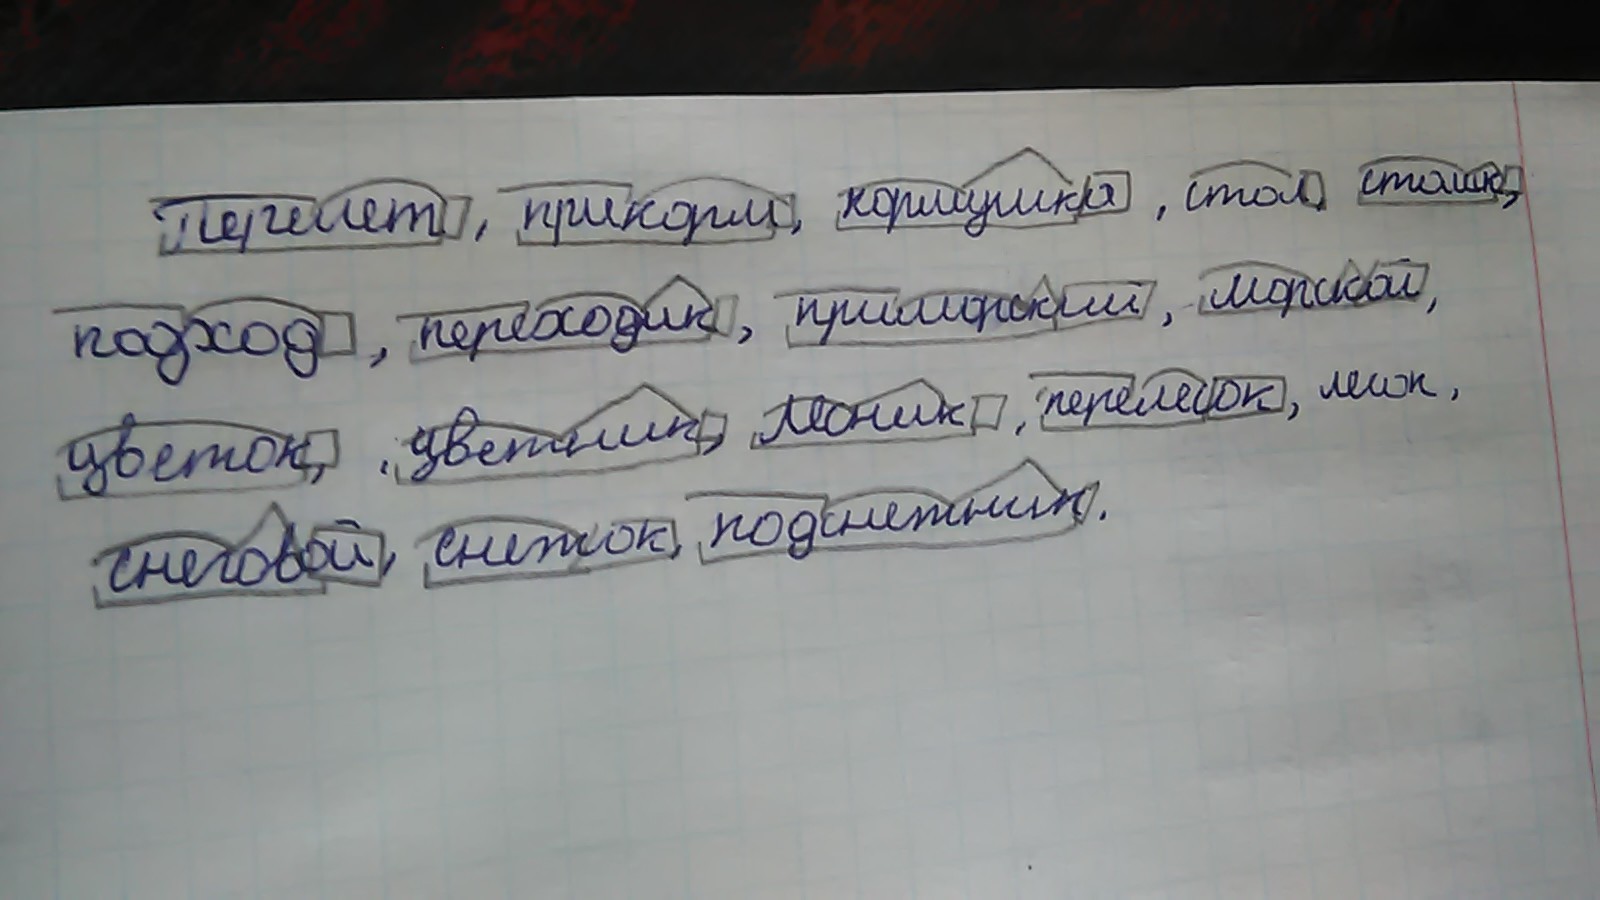 Перелет, прикорм, кормушка, стол, столик,
подход, переходик, приморский, морской,
цветок, цветник, лесник, перелесок, лесок,
снеговой, снежок, подснежник.